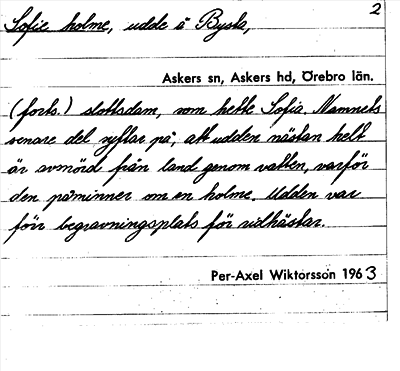 Sofie holme, udde å Bysta,
2
Askers sn, Askers hd, Örebro län.
(forts.) slottsdam, som hette Sofia. Namnets
senare del syftar på, att udden nästan helt
är avsnörd från land genom vatten, varför
den påminner om en holme. Udden var
förr begravningsplats för ridhästar.
Per-Axel Wiktorsson 1963